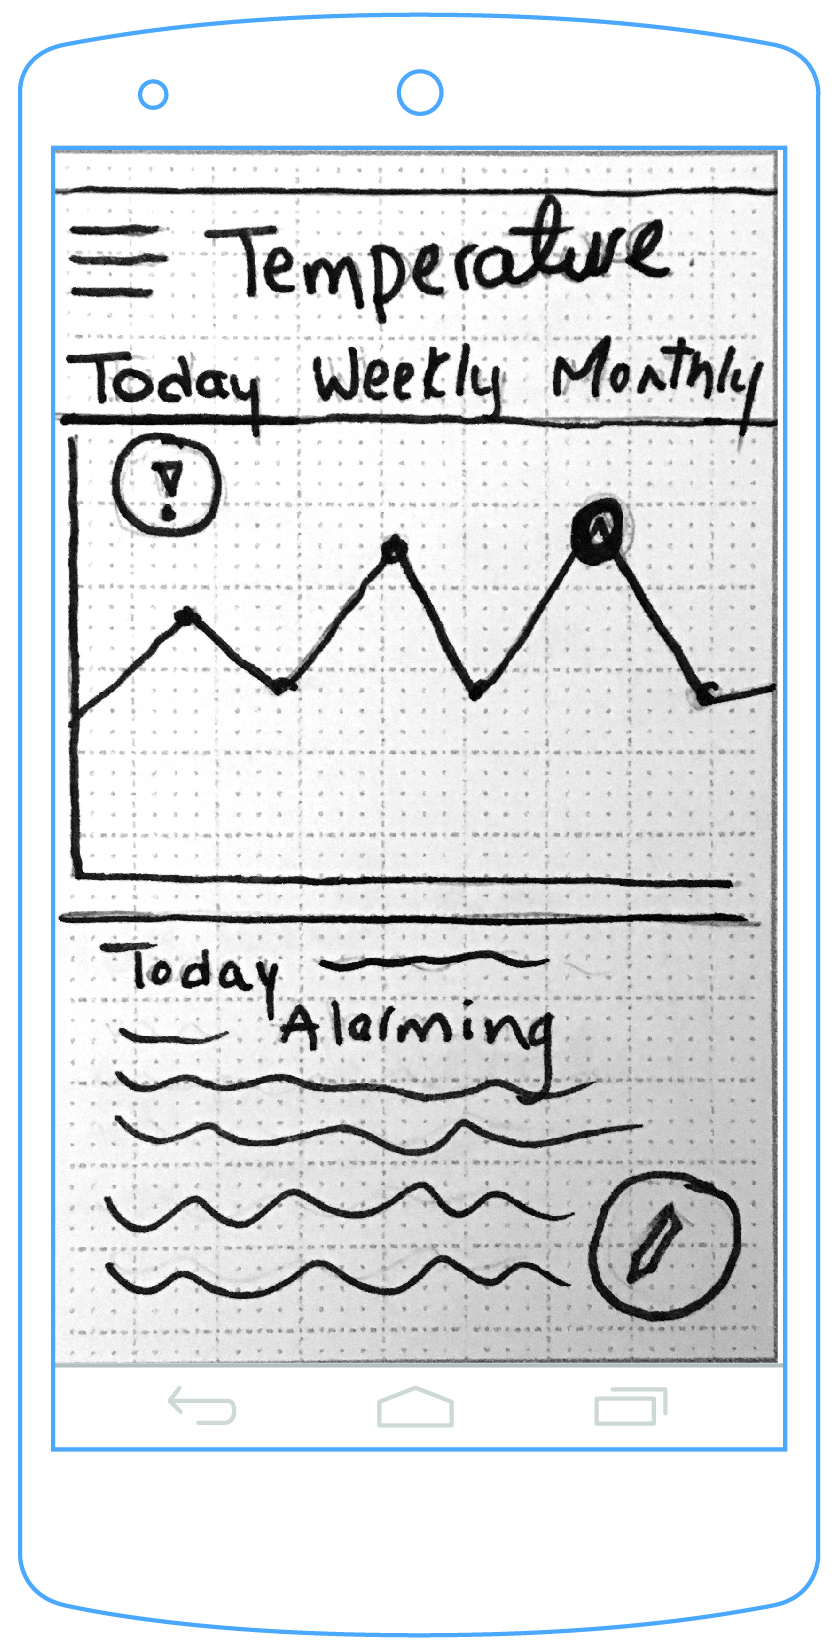 Temperature
Today Weekly Monthly
!
Today
Alarming